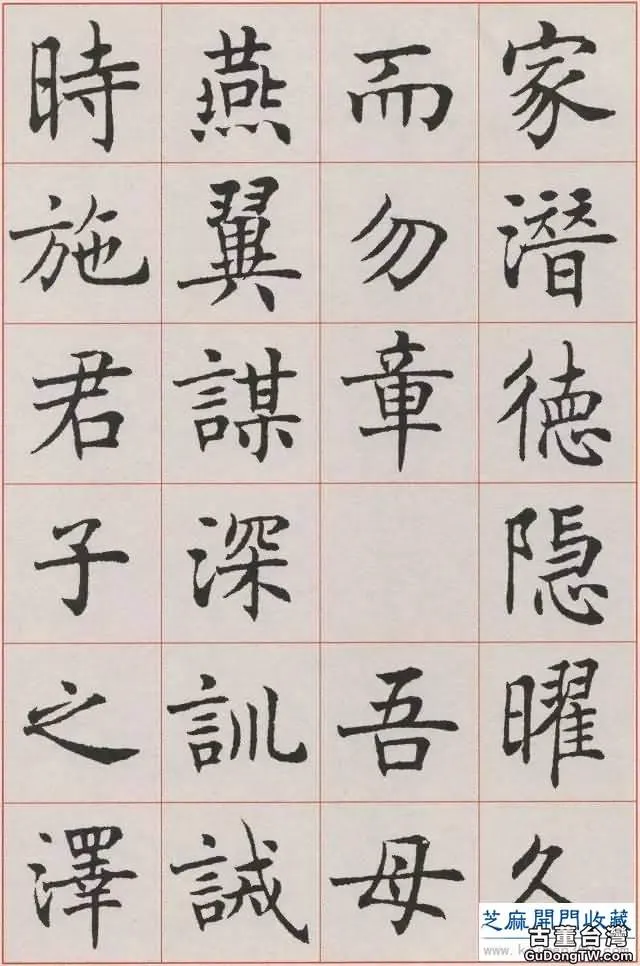 家潜德隱曜久
而勿章 吾母
燕翼謀深訓誡
時施君子之澤
芝麻開門收藏
古董台灣
GuDongTW.com